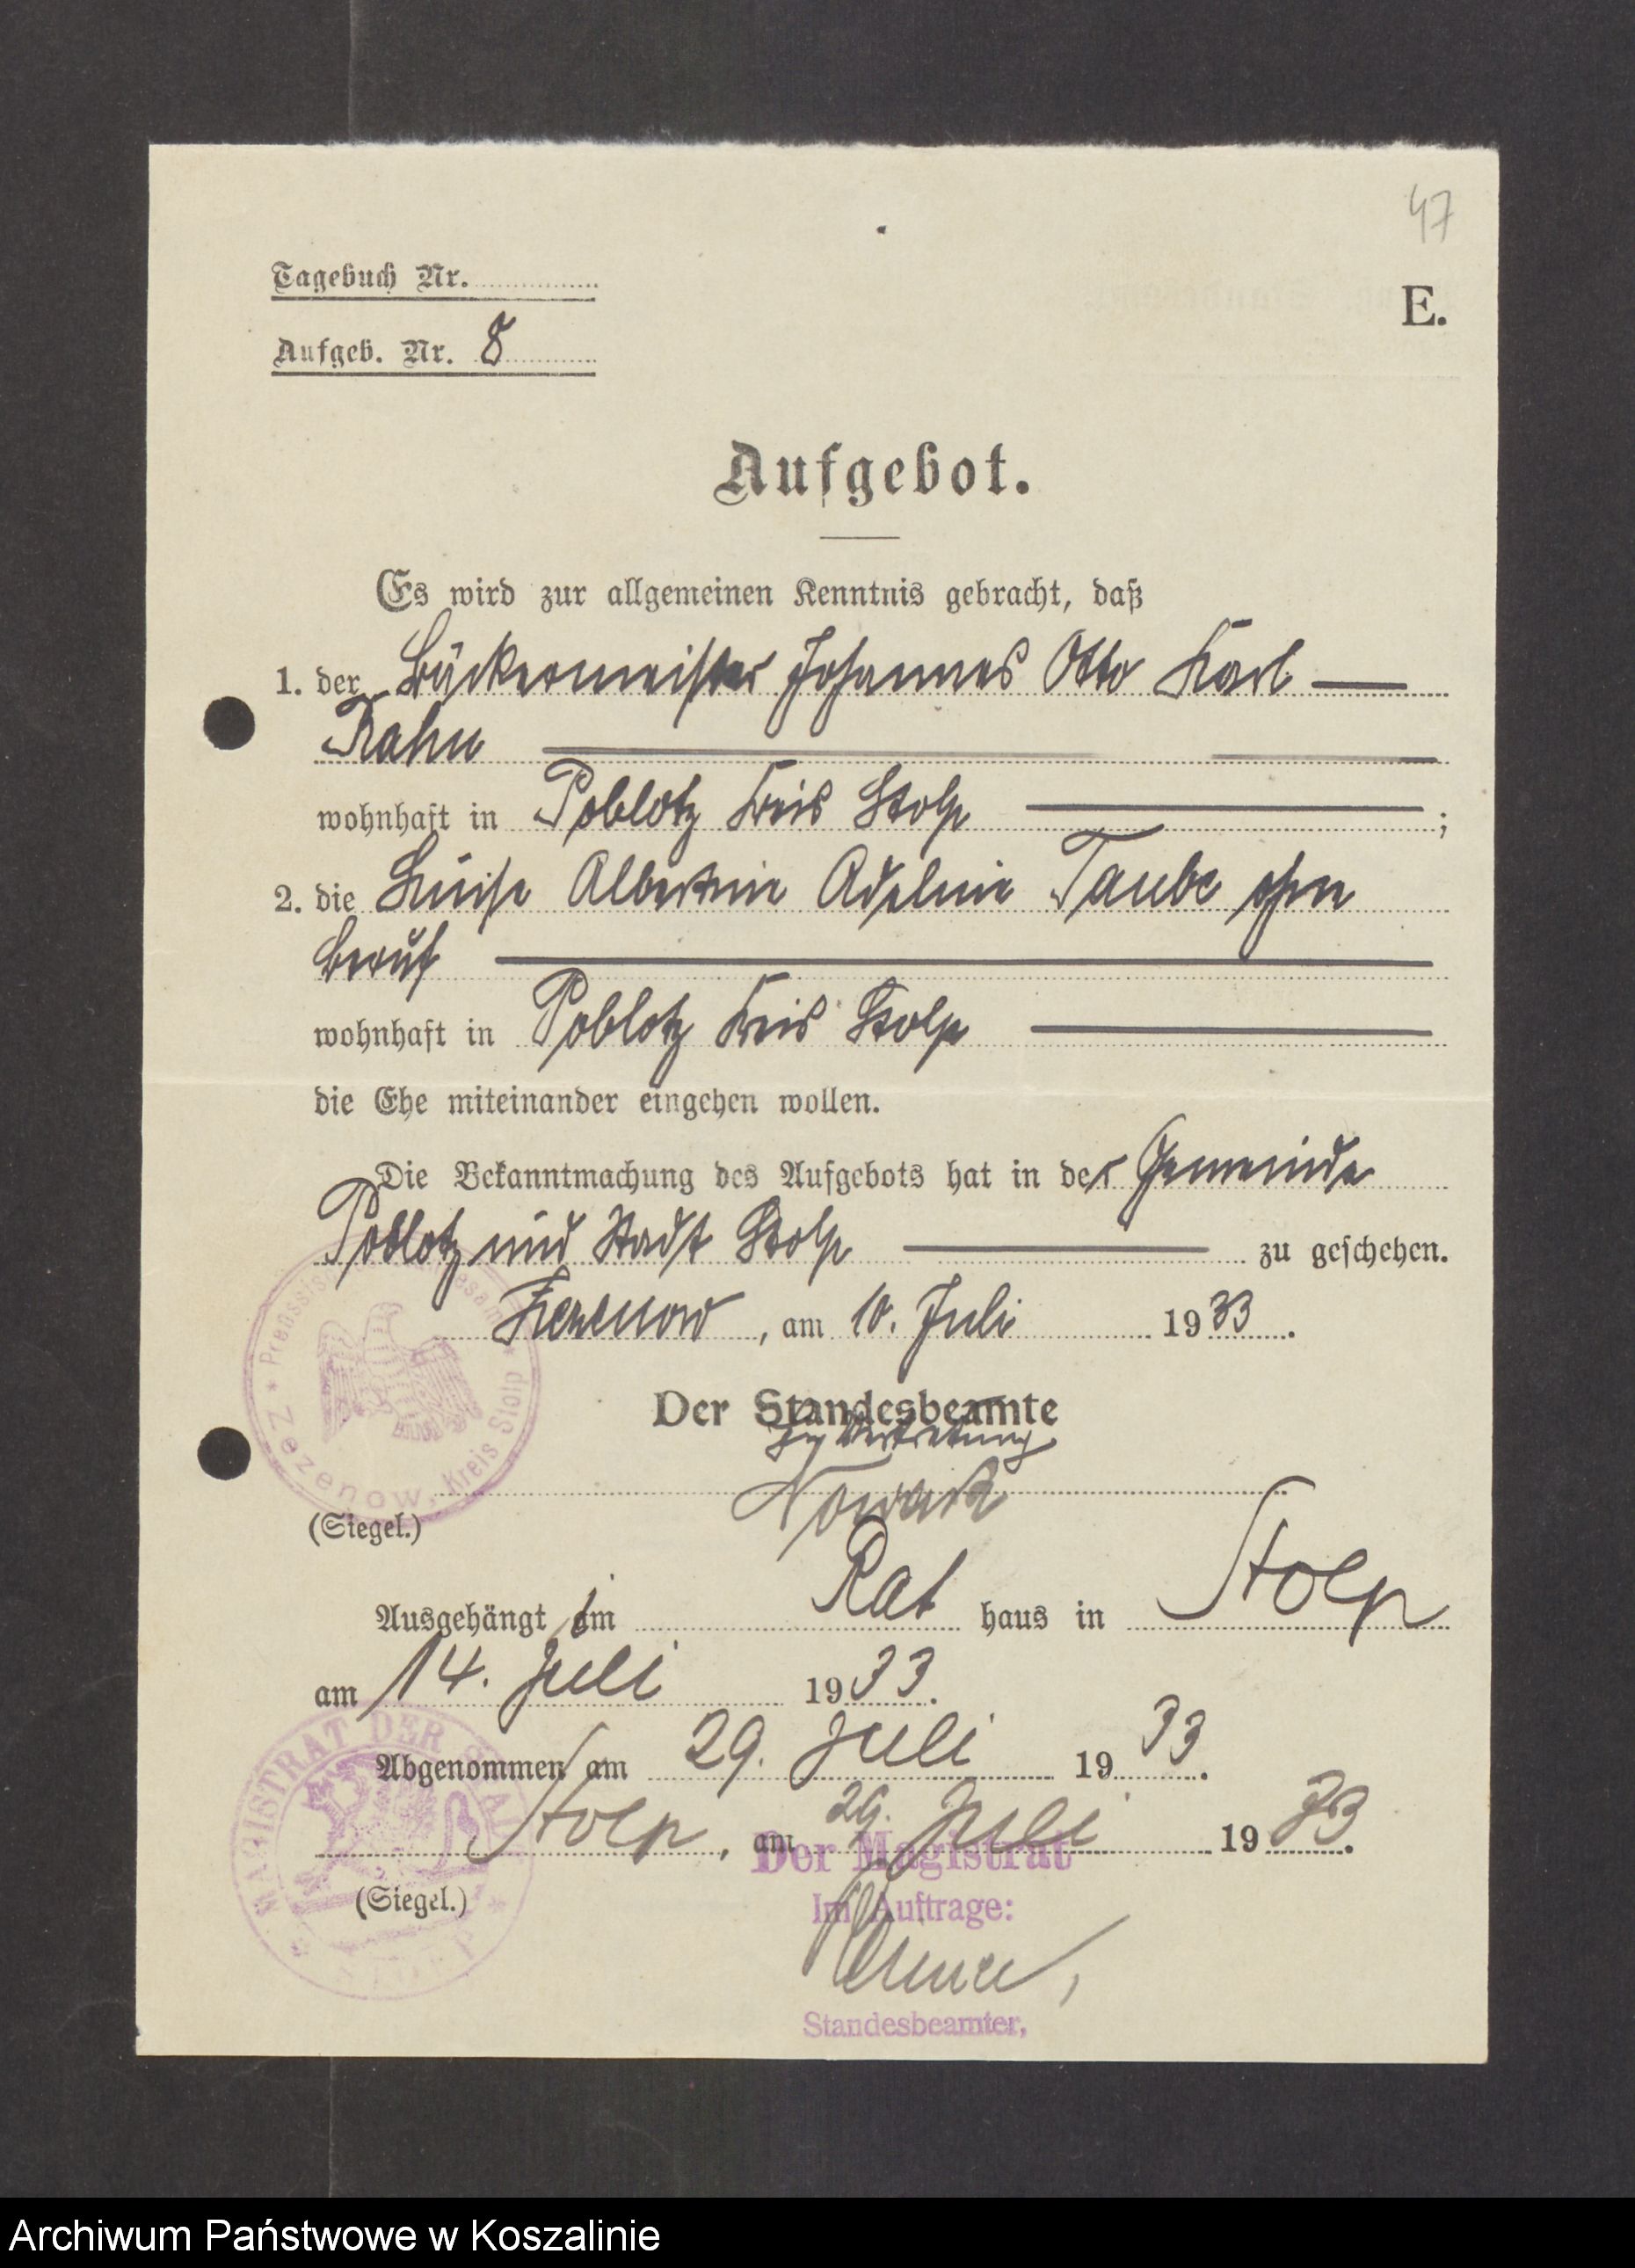 47
Tagebuch Nr.
E.
Aufgeb. Nr. 8
Aufgebot.
Es wird zur allgemeinen Kenntnis gebracht, daß
1. der Bäckermeister Johannes Otto Karl
Rahn
wohnhaft in Poblotz Kreis Stolp ;
2. die Luise Albertine Adeline Taube ohne
Beruf
wohnhaft in Poblotz Kreis Stolp
die Ehe miteinander eingehen wollen.
Die Bekanntmachung des Aufgebots hat in der Gemeinde
Poblotz und Stadt Stolp zu geschehen.
Zezenow, am 10. Juli 1933.
Der Standesbeamte
In Vertretung
Nowack
Preussisches Standesamt * Zezenow, Kreis Stolp *
(Siegel.)
Ausgehängt im Rathaus in Stolp
am 14. Juli 1933.
Abgenommen am 29. Juli 1933.
Stolp, am 29. Juli 1933.
MAGISTRAT DER STADT STOLP
(Siegel.)
Der Magistrat
Im Auftrage:
Standesbeamter,
Archiwum Państwowe w Koszalinie